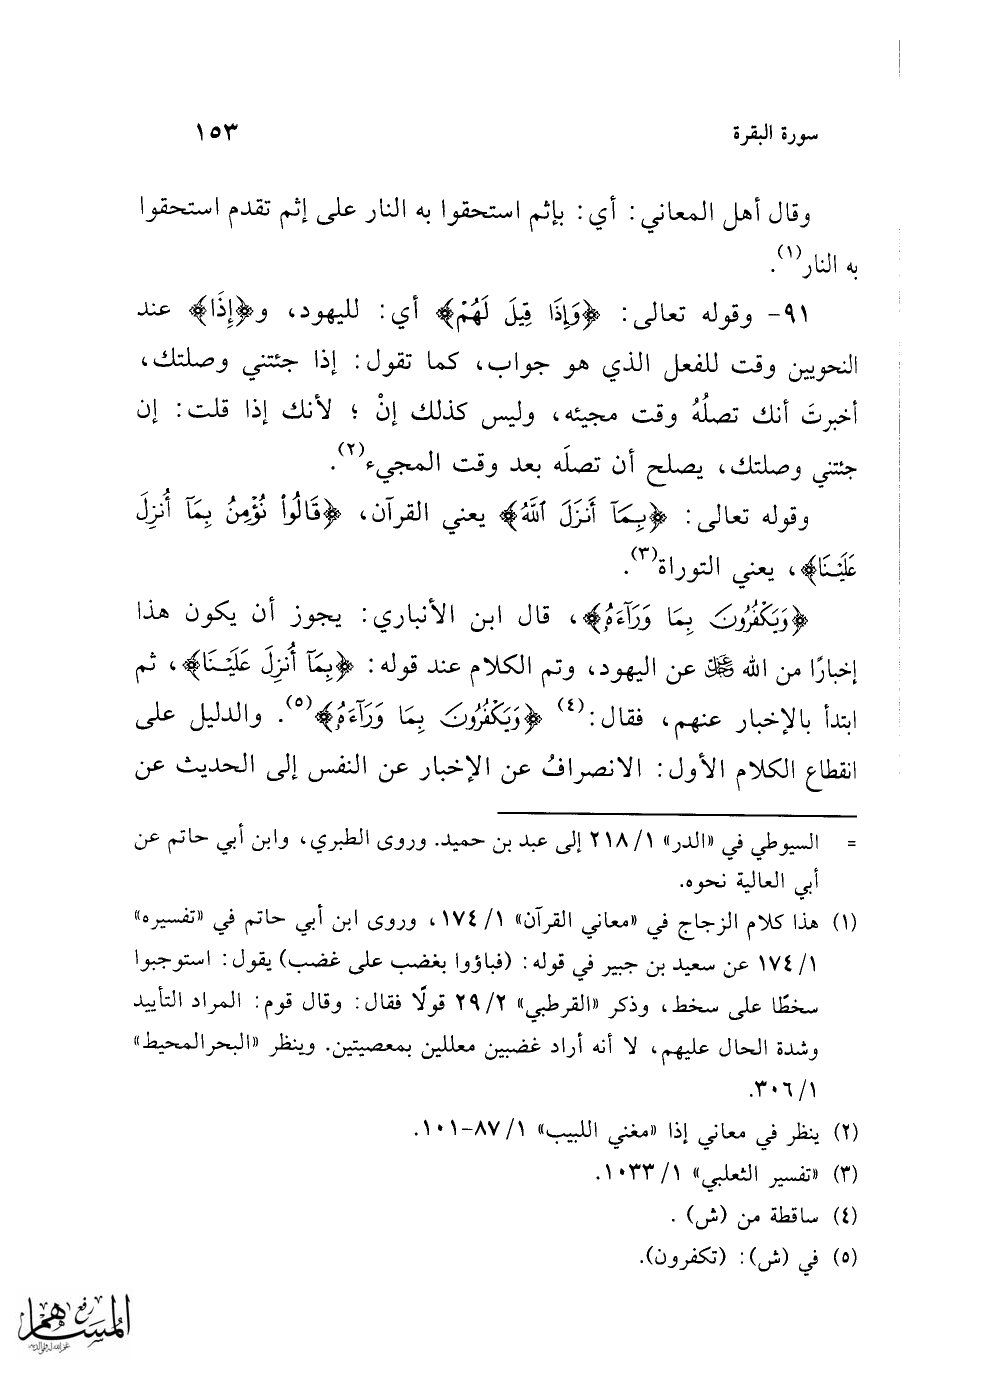 سورة البقرة ١٥٣
وقال أهل المعاني: أي: بإثم استحقوا به النار على إثم تقدم استحقوا
به النار(١).
٩١- وقوله تعالى: ﴿وَإِذَا قِيلَ لَهُمْ﴾ أي: لليهود، و﴿إِذَا﴾ عند
النحويين وقت للفعل الذي هو جواب، كما تقول: إذا جئتني وصلتك،
أخبرتَ أنك تصلُهُ وقت مجيئه، وليس كذلك إنْ ؛ لأنك إذا قلت: إن
جئتني وصلتك، يصلح أن تصلَه بعد وقت المجيء(٢).
وقوله تعالى: ﴿بِمَآ أَنزَلَ ٱللَّهُ﴾ يعني القرآن، ﴿قَالُواْ نُؤْمِنُ بِمَآ أُنزِلَ
عَلَيْنَا﴾، يعني التوراة(٣).
﴿وَيَكْفُرُونَ بِمَا وَرَآءَهُ﴾، قال ابن الأنباري: يجوز أن يكون هذا
إخبارًا من الله ﷿ عن اليهود، وتم الكلام عند قوله: ﴿بِمَآ أُنزِلَ عَلَيْنَا﴾، ثم
ابتدأ بالإخبار عنهم، فقال:(٤) ﴿وَيَكْفُرُونَ بِمَا وَرَآءَهُ﴾(٥). والدليل على
انقطاع الكلام الأول: الانصرافُ عن الإخبار عن النفس إلى الحديث عن
= السيوطي في «الدر» ١/ ٢١٨ إلى عبد بن حميد. وروى الطبري، وابن أبي حاتم عن
أبي العالية نحوه.
(١) هذا كلام الزجاج في «معاني القرآن» ١/ ١٧٤، وروى ابن أبي حاتم في «تفسيره»
١/ ١٧٤ عن سعيد بن جبير في قوله: (فباؤوا بغضب على غضب) يقول: استوجبوا
سخطًا على سخط، وذكر «القرطبي» ٢/ ٢٩ قولًا فقال: وقال قوم: المراد التأييد
وشدة الحال عليهم، لا أنه أراد غضبين معللين بمعصيتين. وينظر «البحرالمحيط»
١/ ٣٠٦.
(٢) ينظر في معاني إذا «مغني اللبيب» ١/ ٨٧-١٠١.
(٣) «تفسير الثعلبي» ١/ ١٠٣٣.
(٤) ساقطة من (ش) .
(٥) في (ش): (تكفرون).